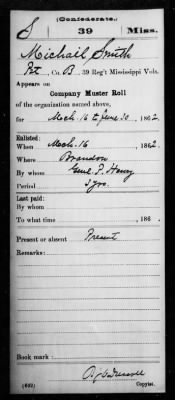 (Confederate.)
S 39 Miss.
Michail Smith
Pvt, Co. B, 39 Reg't Mississippi Vols.
Appears on
Company Muster Roll
of the organization named above,
for Mch. 16 to June 30, 1862.
Enlisted:
When Mch. 16, 1862.
Where Brandon
By whom Genl P. Henry
Period 3 yrs.
Last paid:
By whom
To what time , 186 .
Present or absent Present
Remarks:
Book mark:
(642) Copyist.